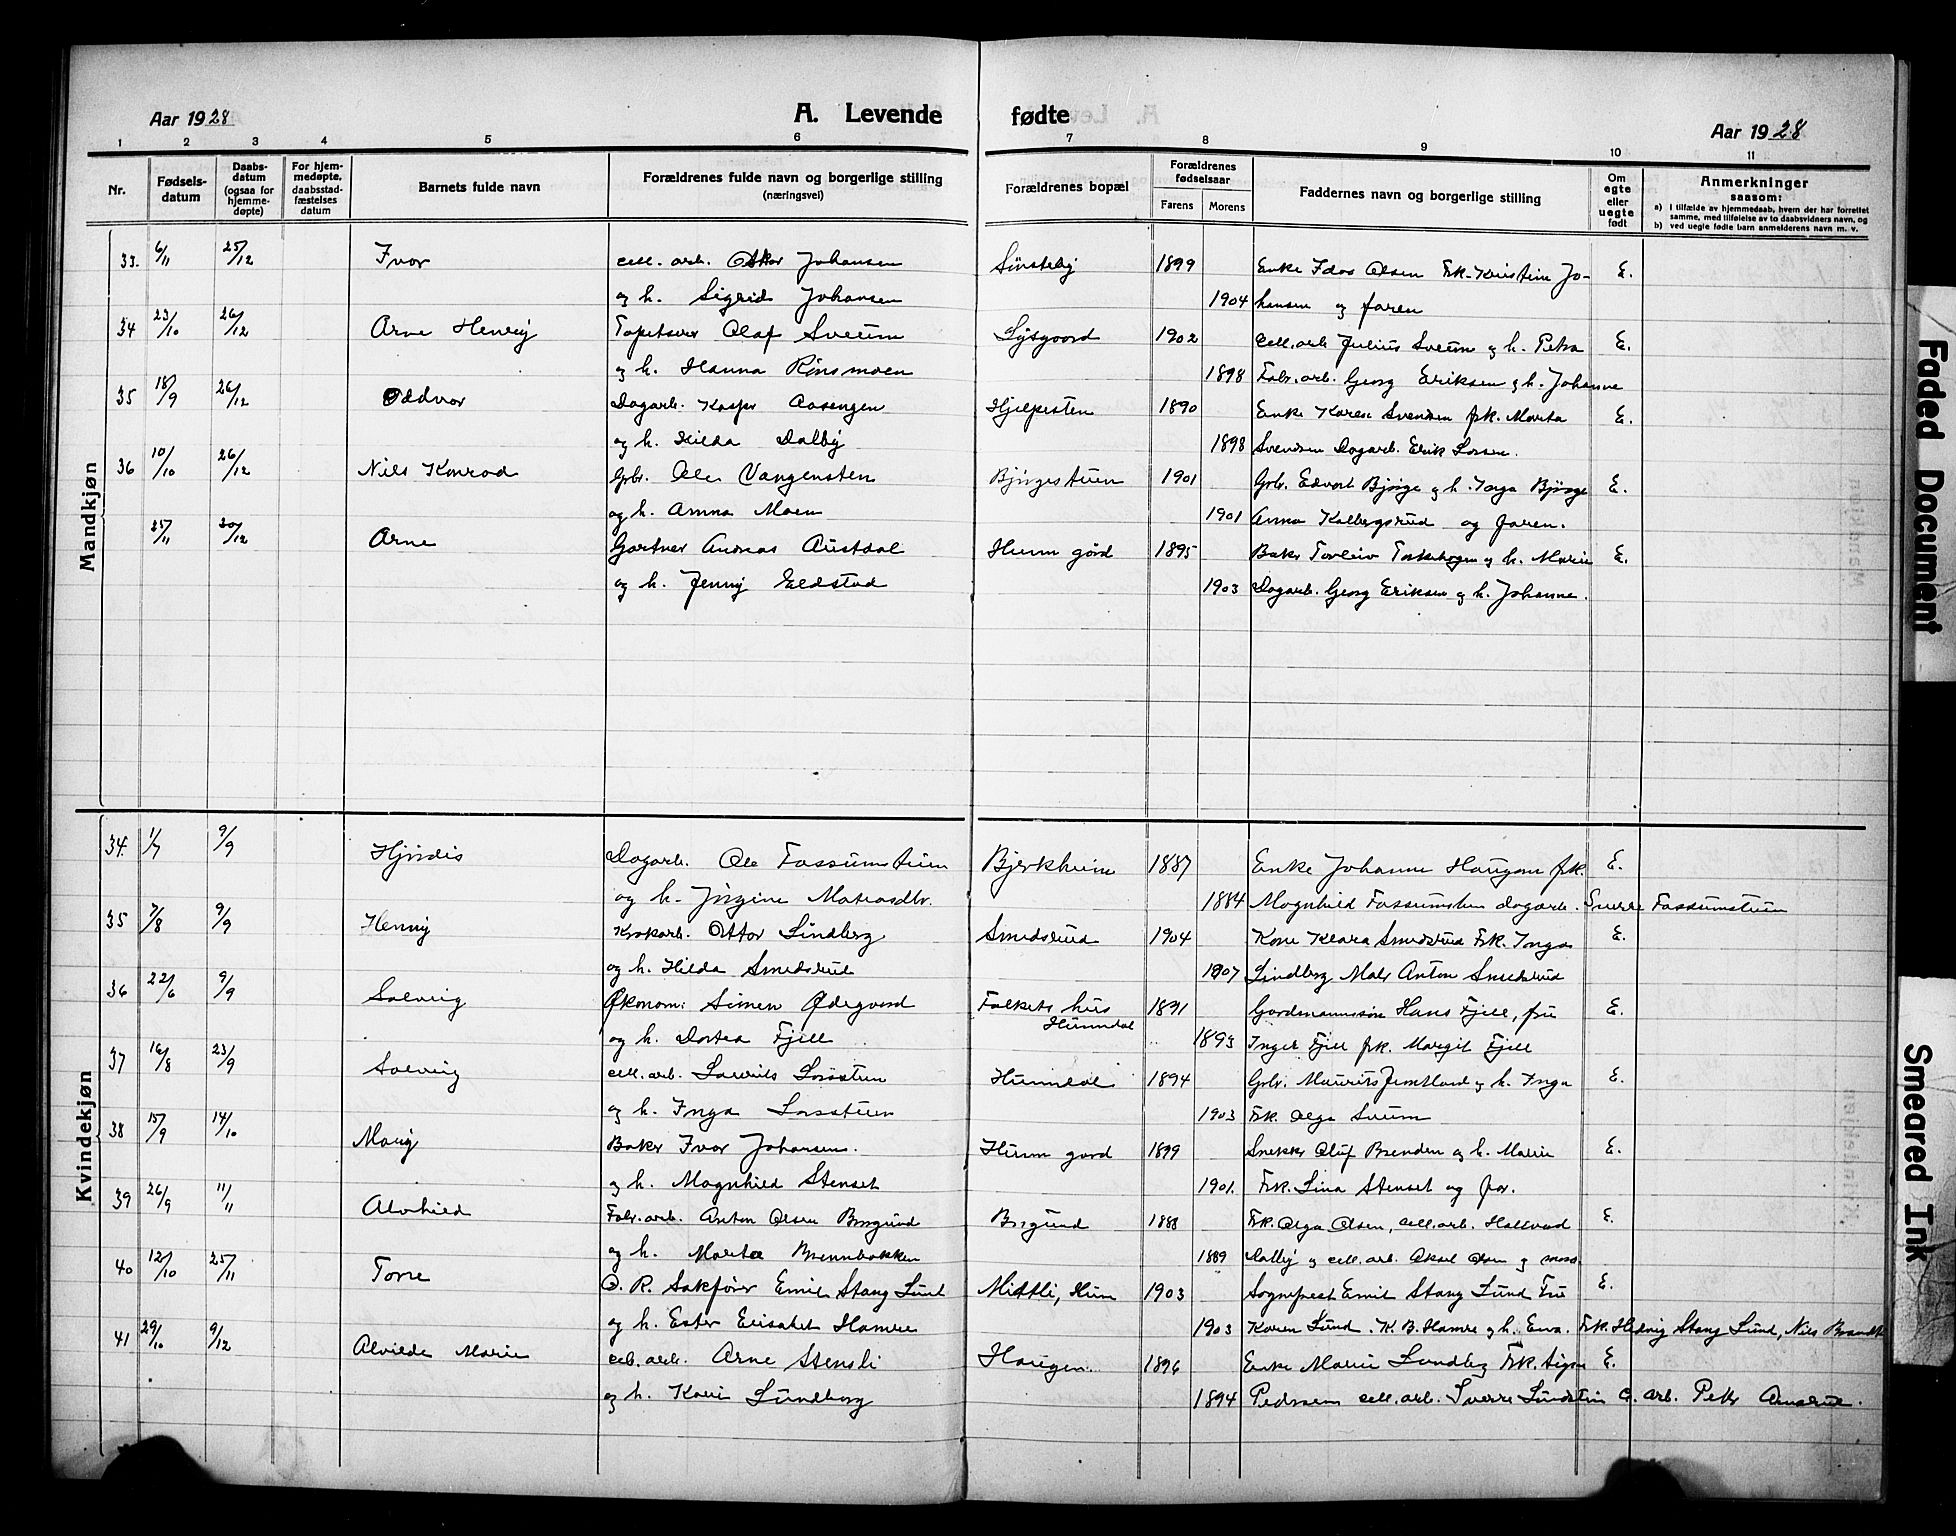 Aar 1928 A. Levende fødte Aar 1928
1 2 3 4 5 6 7 8 9 10 11
Nr. Fødsels-datum Daabs-datum (ogsaa for hjemme-døpte) For hjem-medøpte, daabsstad-fæstelses datum Barnets fulde navn Forældrenes fulde navn og borgerlige stilling (næringsvei) Forældrenes bopæl Forældrenes fødselsaar Farens Morens Faddernes navn og borgerlige stilling Om egte eller uegte født Anmerkninger saasom: a) I tilfælde av hjemmedaab, hvem der har forrettet samme, med tilføielse av to daabsvidners navn, og b) ved uegte fødte barn anmelderens navn m. v.
Mandkjøn
33. 6/11 25/12 Ivar cell. arb. Oskar Johansen 1899 Enke Idas Olsen Frk. Kristine Jo- E.
og h. Sigrid Johansen 1904 hansen og faren
34 23/10 26/12 Arne Henry Tapetserer Olaf Sveum Lysgaard 1902 cell. arb Julius Sveum og h. Petra E.
og h. Hanna Rønsmoen 1898 Fabr. arb. Georg Eriksen og h. Johanne
35 18/9 26/12 Oddvar Dagarb. Kaspr Aasengen 1890 Enke Karen Svendsen frk. Marta E.
og h. Hilda Dalby 1898 Svendsen Dagarb. Erik Larsen.
36 10/10 26/12 Nils Konrad Gbr. Ole Vangensten Bjørgestuen 1901 Gbr. Edvart Bjørge og h. Inga Bjørge E.
og h. Anna Moen 1901 Anna Kalbergsrud og faren.
25/11 30/12 Arne Gartner Andreas Austdal Hunn gård 1895 Baker Torleiv og h. Marie E.
og h. Jenny Eldstad 1903 Dagarb. Georg Eriksen og h. Johanne.
Kvindekjøn
34. 1/7 9/9 Hjørdis Dagarb. Ole Fossumstuen Bjerkheim 1887 Enke Johanne Haugom frk. E.
og h. Jørgine 1884 Magnhild Fossumstuen dagarb. Sverre Fossumstuen
35 7/8 9/9 Henny Ottar Lindberg Smedsrud 1904 Kone Klara Smedsrud Frk. Inga E.
og h. Hilda Smedsrud 1907 Lindberg Maler Anton Smedsrud
36 22/6 9/9 Solveig Økonom: Simen Ødegaard Folkets hus Hunndal 1891 Gardmannssøn Hans Fjell, fru E.
og h. Dortea Fjell 1893 Inger Fjell frk. Margit Fjell
37 16/8 23/9 Solveig cell. arb. Laurits Larsstuen Hunndal 1894 Gbr. Maurits Jemtland og h. Inga E.
og h. Inga Larsstuen 1903 Frk. Olga Sveum
38 15/9 14/10 Mary Baker Ivar Johansen. Hunn gard 1899 Snekker Oluf Brenden og h. Marie E.
og h. Magnhild Stenset 1901. Frk. Lina Stenset og far.
39 26/9 11/11 Alvhild Fabr. arb. Anton Olsen Bergsund 1888 Frk. Olga Olsen, cell. arb. Hallvard E.
og h. Marta Brennbakken 1889 Dalby og cell. arb. Aksel Olsen og mora.
40 12/10 25/11 Tone O. R. Sakfører Emil Stang Lund Mittli, Hun 1903 Sogneprest Emil Stang Lund Fru E.
og h. Ester Elisabet Hamre 1903 Karen Lund. K. B. Hamre og h. Ewa. Frk. Hedvig Stang Lund, Nils Brandt
41 29/10 9/12 Alvilde Marie cell. arb. Arne Stensli Haugen 1896 Enke Marie Lundberg Frk. Signe E.
og h. Kari Lundberg 1894 Pedersen cell. arb. Sverre Lundstein C. arb. Petter Amsrud.
Faded Document
Smeared Ink